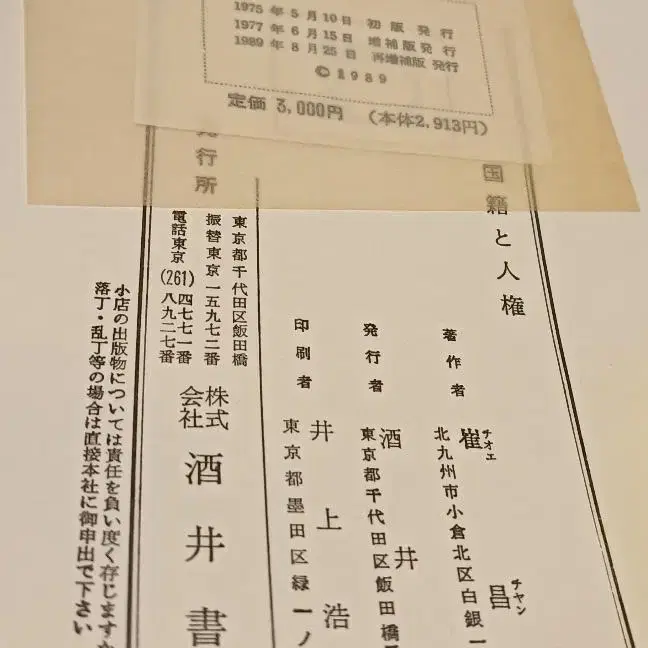 1975年5月10日 初版発行
1977年6月15日 増補版発行
1989年8月25日 再増補版発行
©1989
定価 3,000円 (本体2,913円)
国籍と人権
著作者 崔昌
チオエ チヤン
北九州市小倉北区白銀一
発行者 酒井
東京都千代田区飯田橋
印刷者 井上浩
東京都墨田区緑一ノ
発行所
東京都千代田区飯田橋
振替東京一五九七二番
電話東京(261)四七七一番
八九二七番
株式会社 酒井書
小店の出版物については責任を負い度く存じますか
落丁・乱丁等の場合は直接本社に御申出で下さい